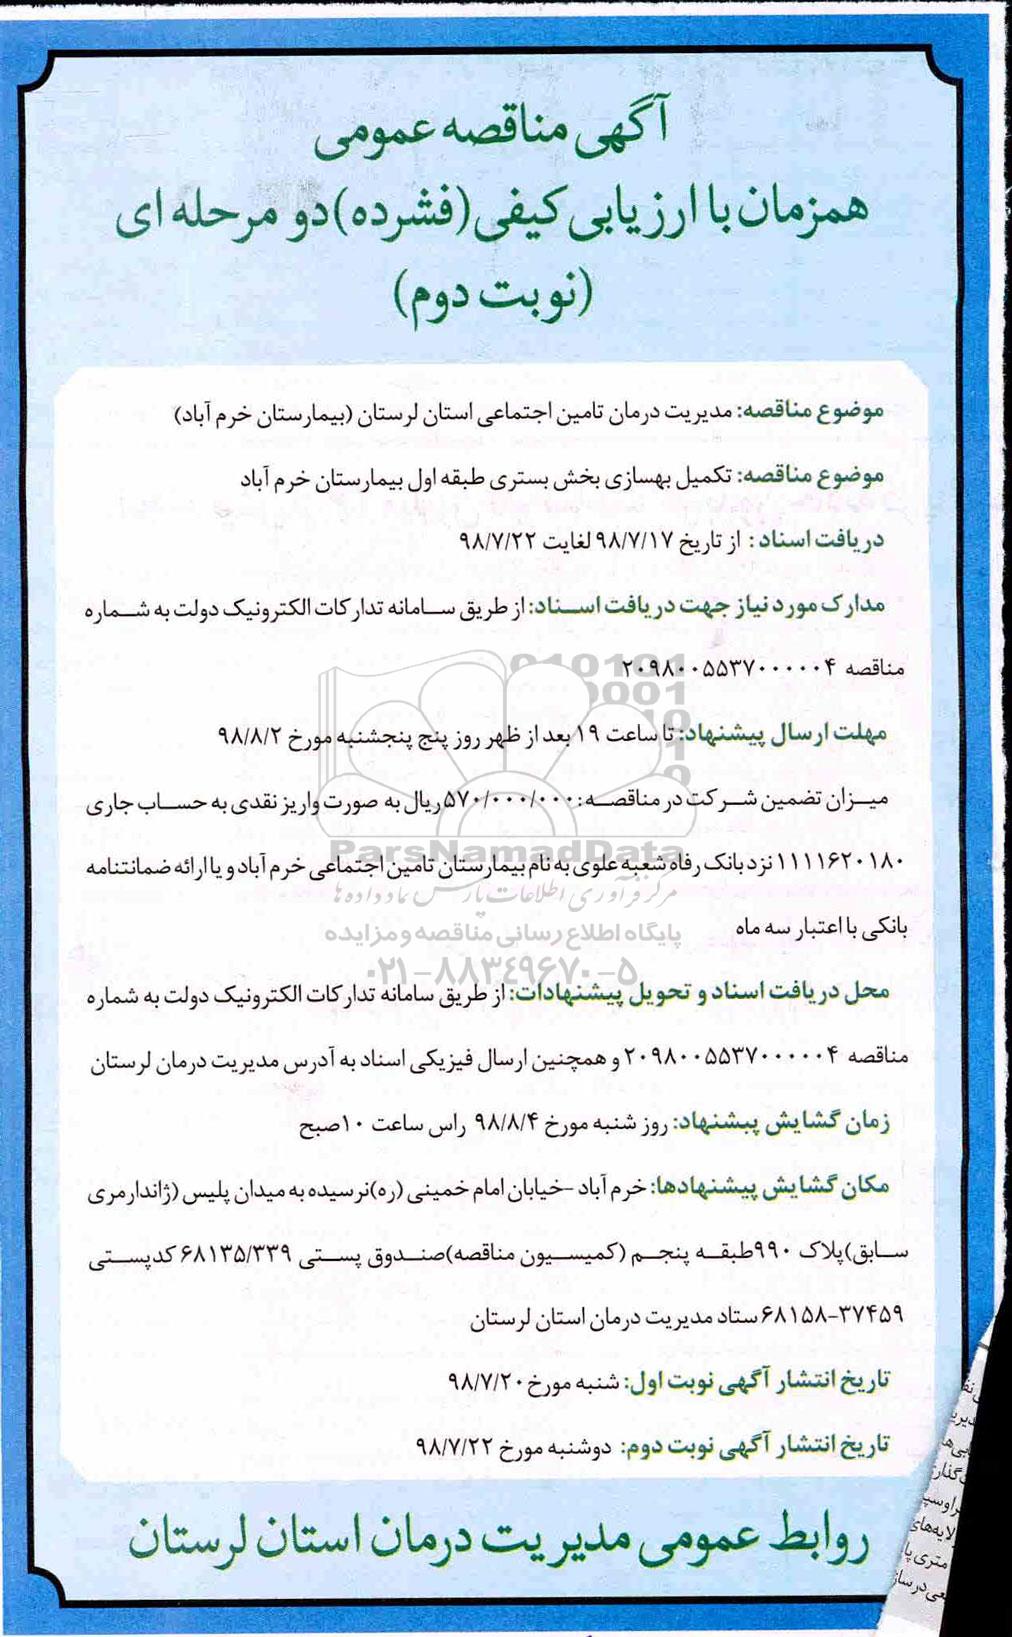 آگهی مناقصه عمومی
همزمان با ارزیابی کیفی (فشرده) دو مرحله ای
(نوبت دوم)
موضوع مناقصه: مدیریت درمان تامین اجتماعی استان لرستان (بیمارستان خرم آباد)
موضوع مناقصه: تکمیل بهسازی بخش بستری طبقه اول بیمارستان خرم آباد
دریافت اسناد : از تاریخ ۹۸/۷/۱۷ لغایت ۹۸/۷/۲۲
مدارک مورد نیاز جهت دریافت اسناد: از طریق سامانه تدارکات الکترونیک دولت به شماره
مناقصه ۲۰۹۸۰۰۵۵۳۷۰۰۰۰۰۴
مهلت ارسال پیشنهاد: تا ساعت ۱۹ بعد از ظهر روز پنج پنجشنبه مورخ ۹۸/۸/۲
میزان تضمین شرکت در مناقصه: ۵۷۰/۰۰۰/۰۰۰ ریال به صورت واریز نقدی به حساب جاری
۱۱۱۱۶۲۰۱۸۰ نزد بانک رفاه شعبه علوی به نام بیمارستان تامین اجتماعی خرم آباد و یا ارائه ضمانتنامه
بانکی با اعتبار سه ماه
محل دریافت اسناد و تحویل پیشنهادات: از طریق سامانه تدارکات الکترونیک دولت به شماره
مناقصه ۲۰۹۸۰۰۵۵۳۷۰۰۰۰۰۴ و همچنین ارسال فیزیکی اسناد به آدرس مدیریت درمان لرستان
زمان گشایش پیشنهاد: روز شنبه مورخ ۹۸/۸/۴ راس ساعت ۱۰صبح
مکان گشایش پیشنهادها: خرم آباد -خیابان امام خمینی (ره) نرسیده به میدان پلیس (ژاندارمری
سابق) پلاک ۹۹۰ طبقه پنجم (کمیسیون مناقصه) صندوق پستی ۶۸۱۳۵/۳۳۹ کدپستی
۶۸۱۵۸-۳۷۴۵۹ ستاد مدیریت درمان استان لرستان
تاریخ انتشار آگهی نوبت اول: شنبه مورخ ۹۸/۷/۲۰
تاریخ انتشار آگهی نوبت دوم: دوشنبه مورخ ۹۸/۷/۲۲
روابط عمومی مدیریت درمان استان لرستان
ParsNamadData
مرکز فرآوری اطلاعات پارس نماد داده ها
پایگاه اطلاع رسانی مناقصه و مزایده
۰۲۱-۸۸۳۴۹۶۷۰-۵